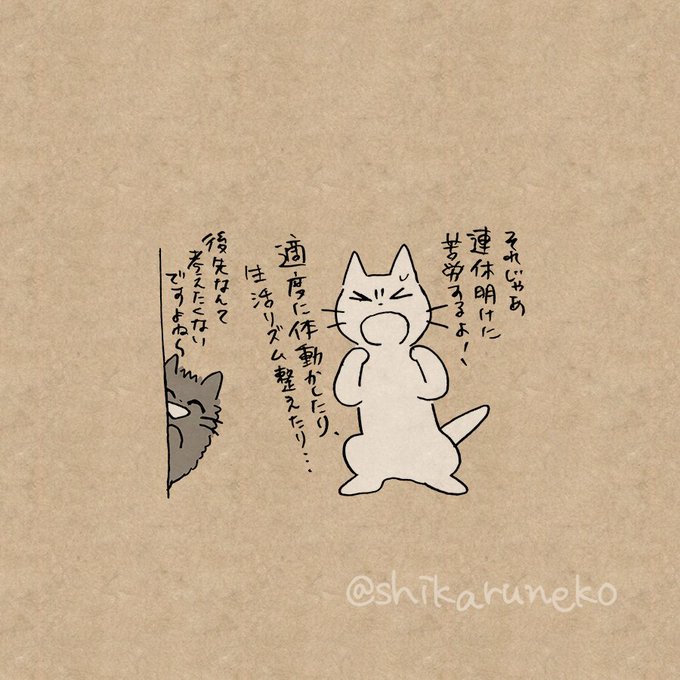 それじゃあ
連休明けに
苦労するよ！、
適度に体動かしたり、
生活リズム整えたり…
後先なんて
考えたくない
ですよね〜
@shikaruneko